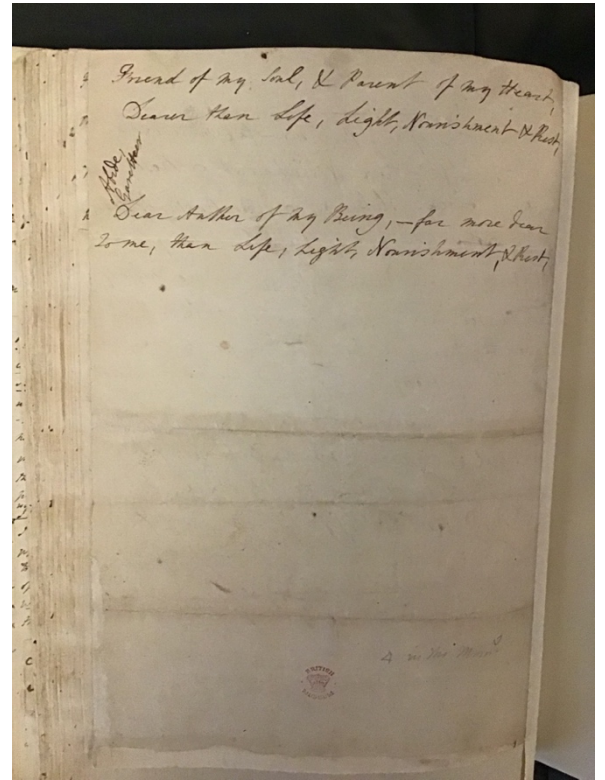 Friend of my Soul, & Parent of my Heart,
Dearer than Life, Light, Nourishment & Rest,
Dear Author of my Being, — far more dear
To me, than Life, Light, Nourishment, & Rest,
in the
BRITISH